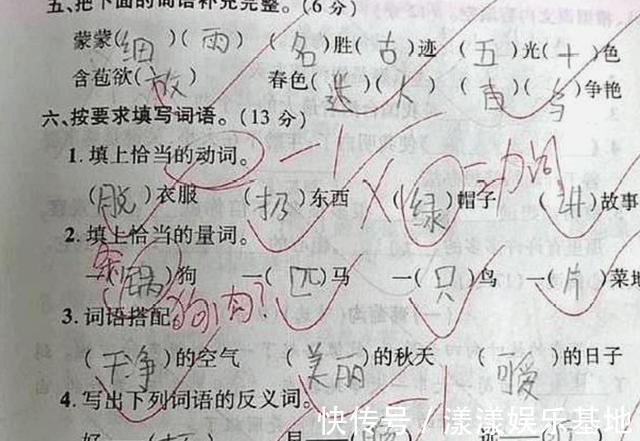 五、把下面的词语补充完整。(6分)
蒙蒙(细)(雨) (名)胜(古)迹 (五)光(十)色
含苞欲(放) 春色(迷)(人) (百)( )争艳
六、按要求填写词语。(13分)
-1
1.填上恰当的动词。
(脱)衣服 (扔)东西 (绿)帽子 (讲)故事
动词
2.填上恰当的量词。
条
(锅)狗 一(匹)马 一(只)鸟 一(片)菜地
狗肉?
3.词语搭配
(干净)的空气 (美丽)的秋天 (可爱)的日子
4.写出下列词语的反义词。
快传号/漾漾娱乐基地